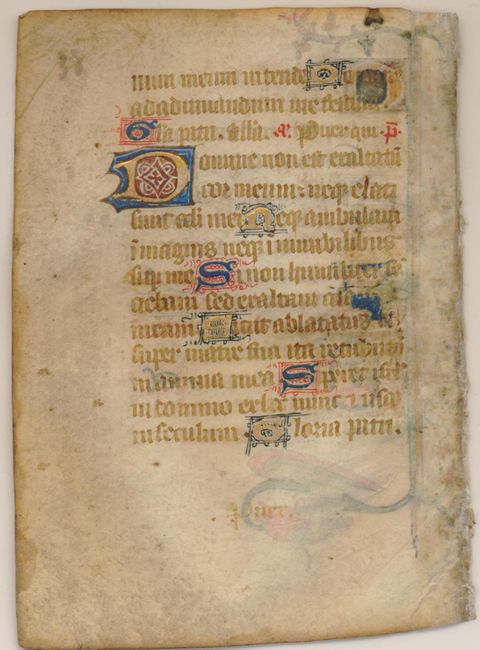 num meum intende D
ad adiuuandum me festina
Gła pr̄i. all̄a. a. Puer qui. p̄.
Domine non est exaltatū
cor meum: neqꝫ elati
sunt ocl̄i mei Neqꝫ ambulaui
ī magnis neqꝫ ī mirabilibus
sup me Si non humiliter se
ciebam sed exaltaui
meam Sicut ablactatus
super matre sua ita retributio
in anima mea Speret isrl̄
in domino ex nunc ⁊ usqꝫ
in seculum. Gloria pr̄i.
Puer.